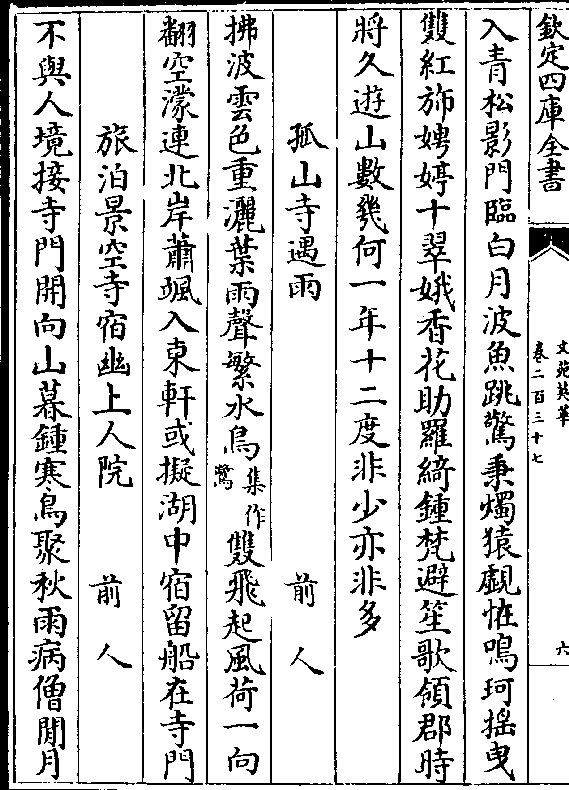 欽定四庫全書
文苑英華
卷二百三十七
六
入青松影門臨白月波魚跳驚秉燭猿覷怪鳴珂揺曳
雙紅斾娉婷十翠娥香花助羅綺鍾梵避笙歌領郡時
將久遊山數幾何一年十二度非少亦非多
孤山寺遇雨 前人
拂波雲色重灑葉雨聲繁水鳥集作鷺雙飛起風荷一向
翻空濛連北岸蕭颯入東軒或擬湖中宿留船在寺門
旅泊景空寺宿幽上人院 前人
不與人境接寺門開向山暮鍾寒鳥聚秋雨病僧閒月